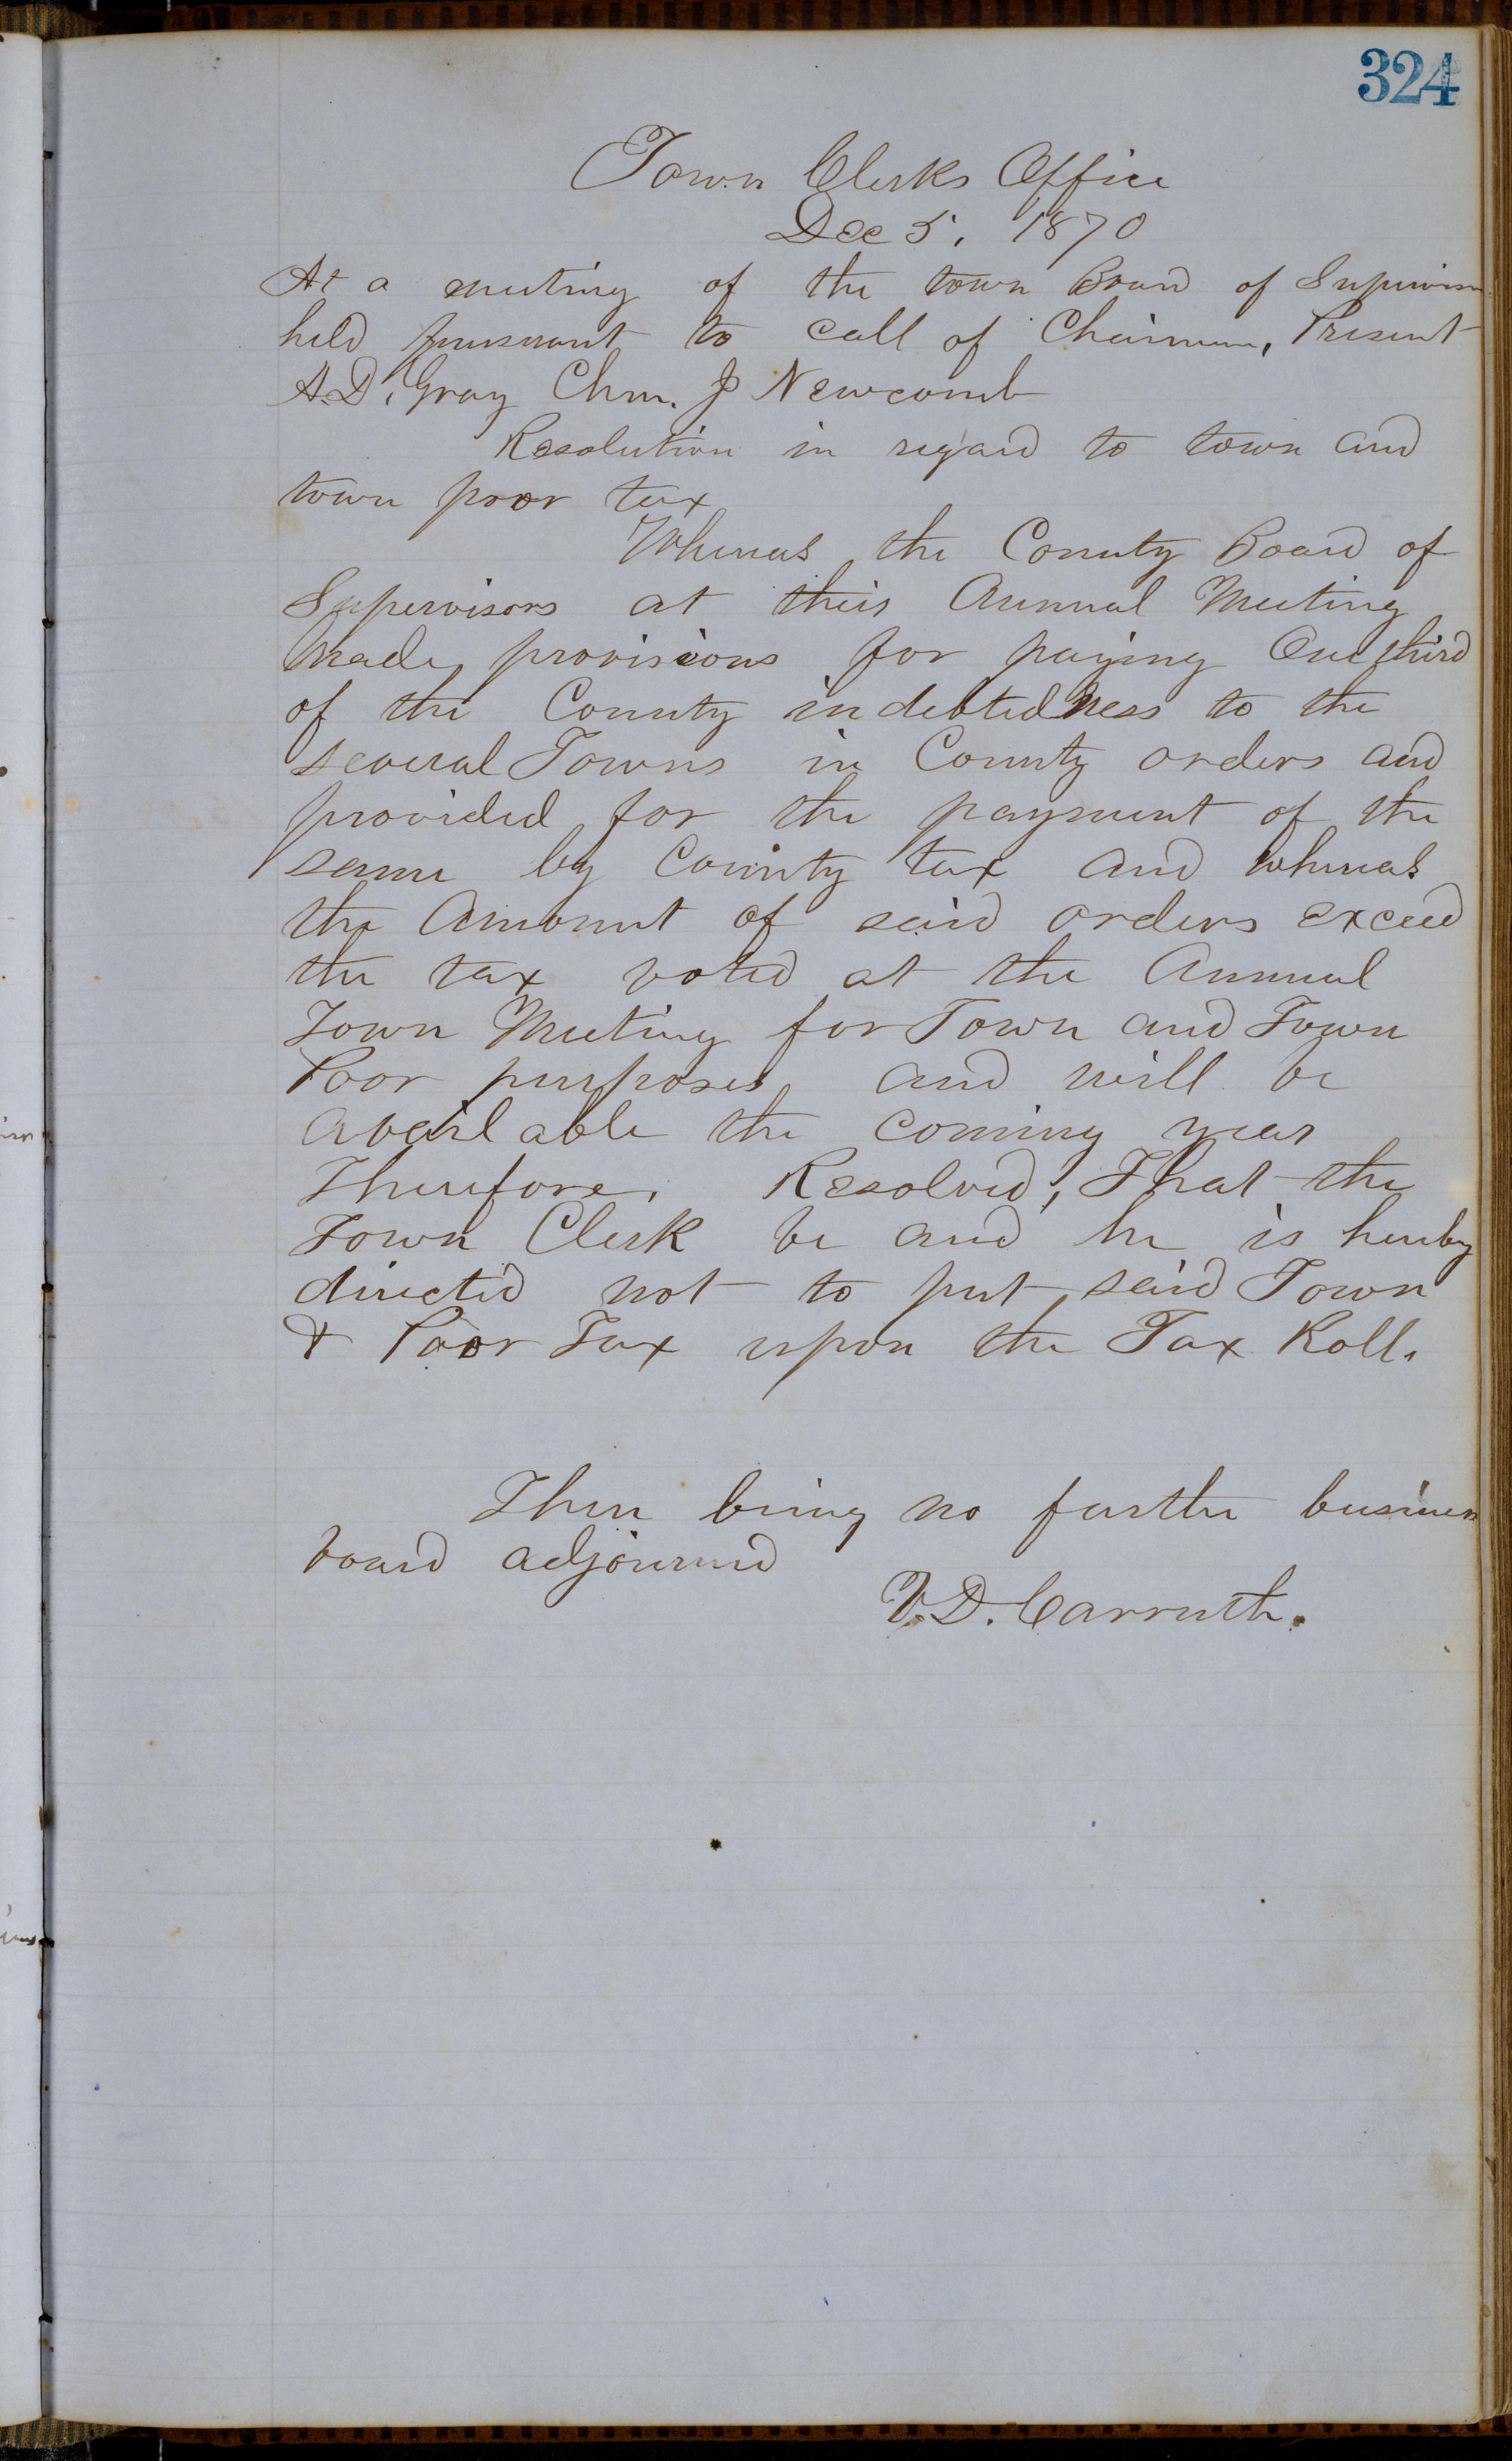 324
Town Clerks Office
Dec 5, 1870
At a meeting of the town Board of Supervisors
held pursuant to call of Chairman, Present
A.D. Gray Chm. J Newcomb
Resolution in regard to town and
town poor tax
Whereas the County Board of
Supervisors at their Annual Meeting
Made provisions for paying One third
of the County indebtedness to the
several Towns in County orders and
provided for the payment of the
same by County tax and whereas
the Amount of said orders exceed
the tax voted at the Annual
Town Meeting for Town and Town
Poor purposes and will be
available the coming year
Therefore, Resolved, That the
Town Clerk be and he is hereby
directed not to put said Town
& Poor Tax upon the Tax Roll.
There being no further business
board adjourned
V.D. Carruth.